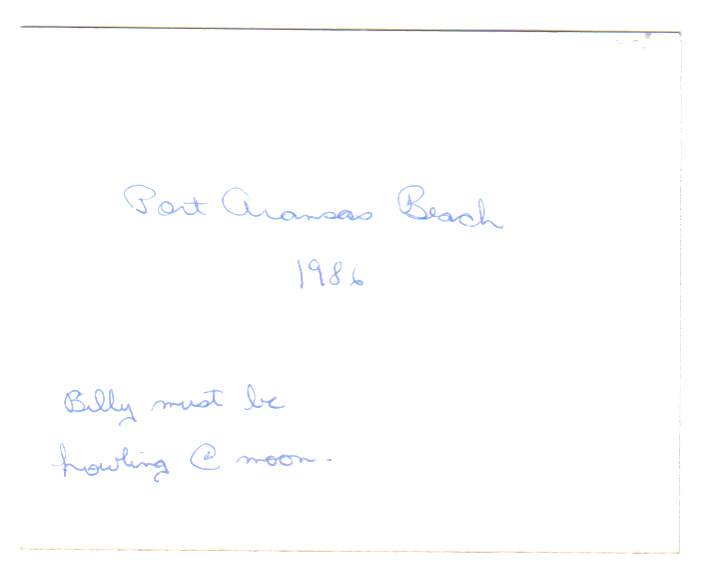 Port Aransas Beach
1986
Billy must be
howling @ moon.